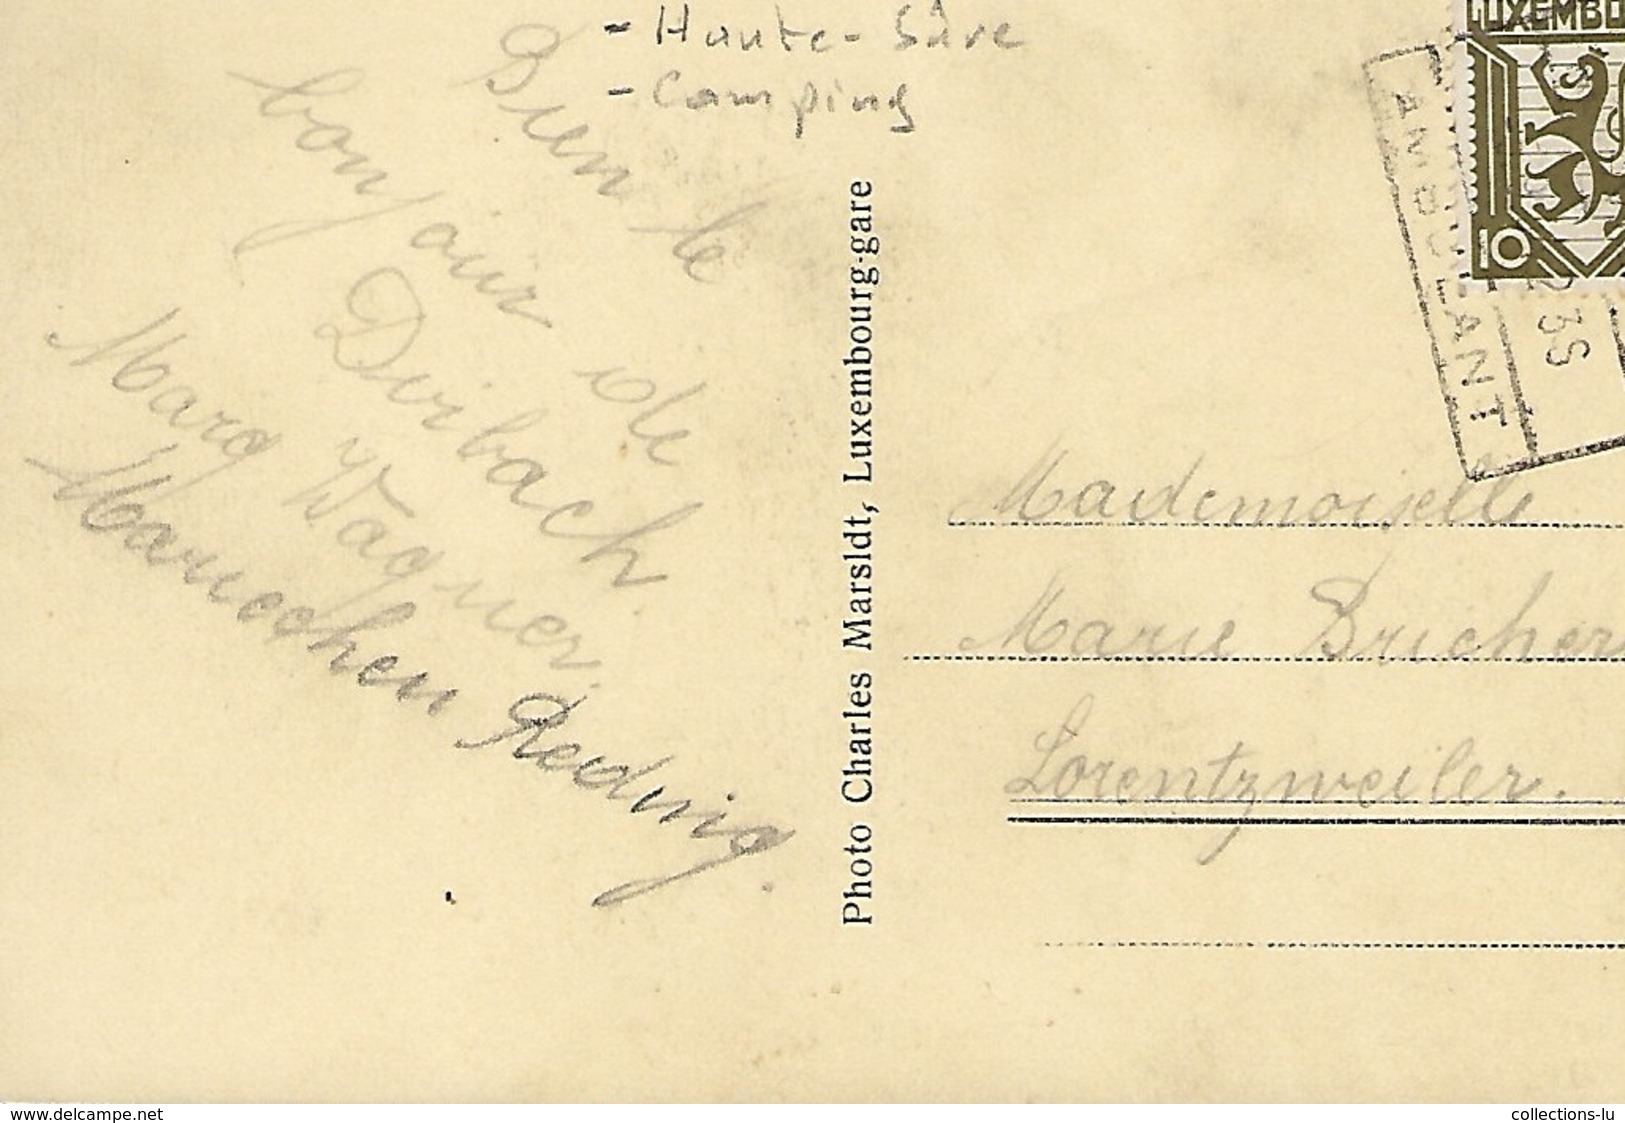 - Haute-Sûre
- Camping
Bien le
bonjour de
Dirbach
Marg Wagner.
Mariechen Reding.
Photo Charles Marsldt, Luxembourg-gare
LUXEMBOU
10
AMBULANT
Mademoiselle
Marie Bricher
Lorentzweiler.
www.delcampe.net
collections-lu